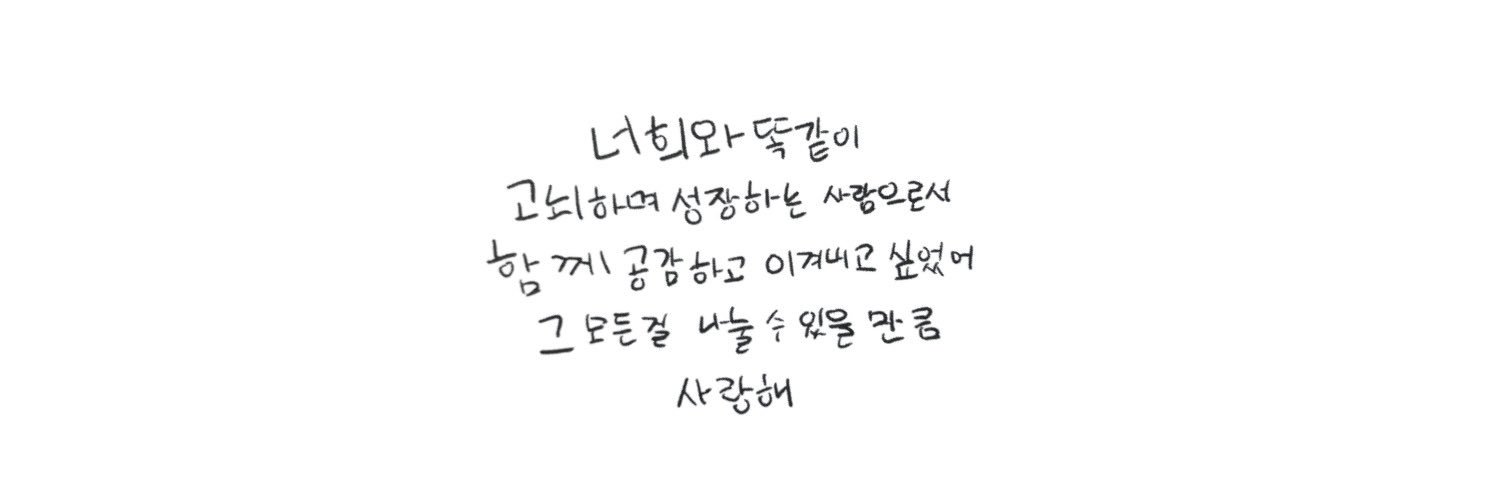 너희와 똑같이
고뇌하며 성장하는 사람으로서
함께 공감하고 이겨내고 싶었어
그 모든걸 나눌 수 있을 만큼
사랑해